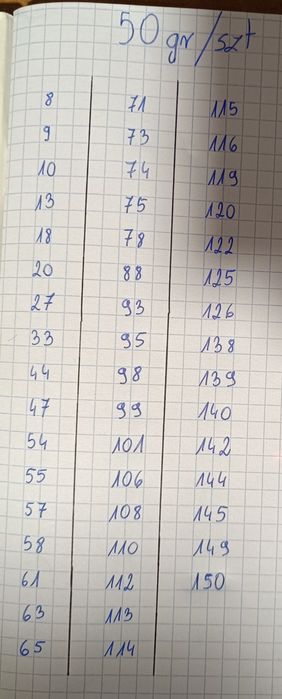 50 gr/szt
8 71 115
9 73 116
10 74 119
13 75 120
18 78 122
20 88 125
27 93 126
33 95 138
44 98 139
47 99 140
54 101 142
55 106 144
57 108 145
58 110 149
61 112 150
63 113
65 114